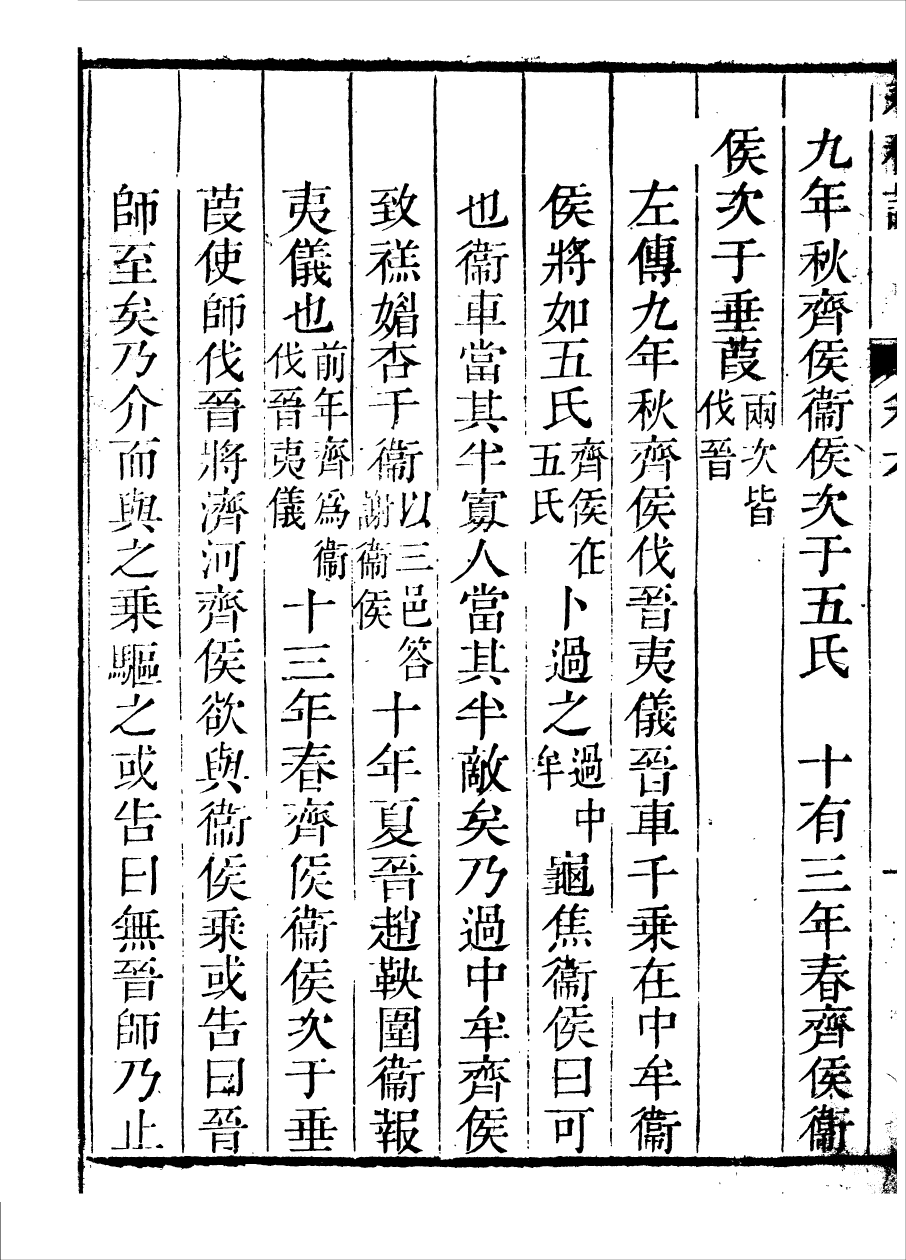 九年秋齊侯衞侯次于五氏　十有三年春齊侯衞
侯次于垂葭兩次皆伐晉
左傳九年秋齊侯伐晉夷儀晉車千乘在中牟衞
侯將如五氏齊侯在五氏卜過之過中牟龜焦衞侯曰可
也衞車當其半寡人當其半敵矣乃過中牟齊侯
致禚媚杏于衞以三邑答謝衞侯十年夏晉趙鞅圍衞報
夷儀也前年齊爲衞伐晉夷儀十三年春齊侯衞侯次于垂
葭使師伐晉將濟河齊侯欲與衞侯乘或告曰晉
師至矣乃介而與之乘驅之或告曰無晉師乃止